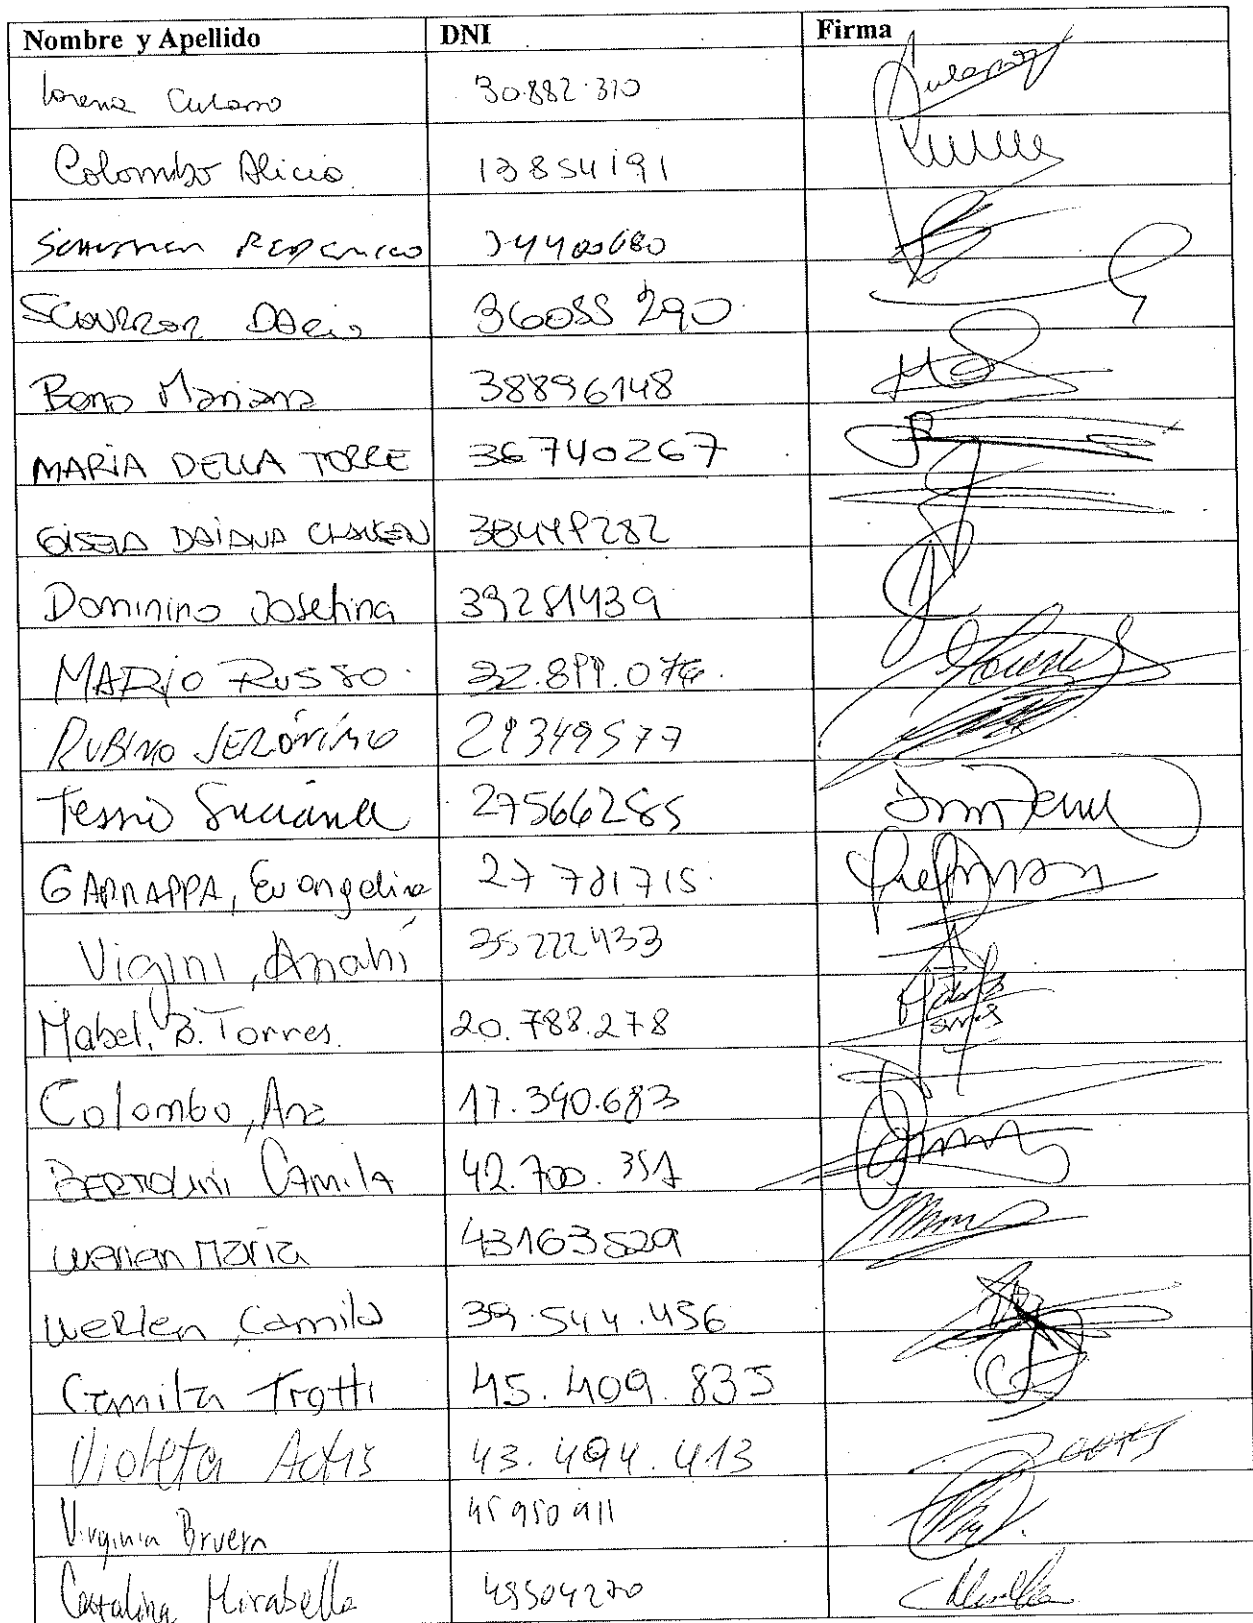 Nombre y Apellido DNI Firma
Lorena Culasso 30.882.310
Colombo Alicia 13854191
Federico
Dario 36085290
Bono Mariana 38896148
MARIA DELLA TORRE 36740267
DAIANA
Dominino Josefina 39281439
MARIO RUSSO. 32.899.076.
RUBINO JERÓNIMO 29349577
Tessio Luciana 27566285
GARNAPPA, Evangelina 27781715.
Vignini, Anahí 35222433
Mabel, B. Torres. 20.788.278 Mabel Torres
Colombo, Ana 17.390.683
BERTOLINI Camila 42.700.351
Werlen María 43163529
Werlen, Camila 39.544.456
Camila Trotti 45.409.835
Violeta Actis 43.494.413
Virginia Bruera 45950911
Catalina Mirabella 49504270